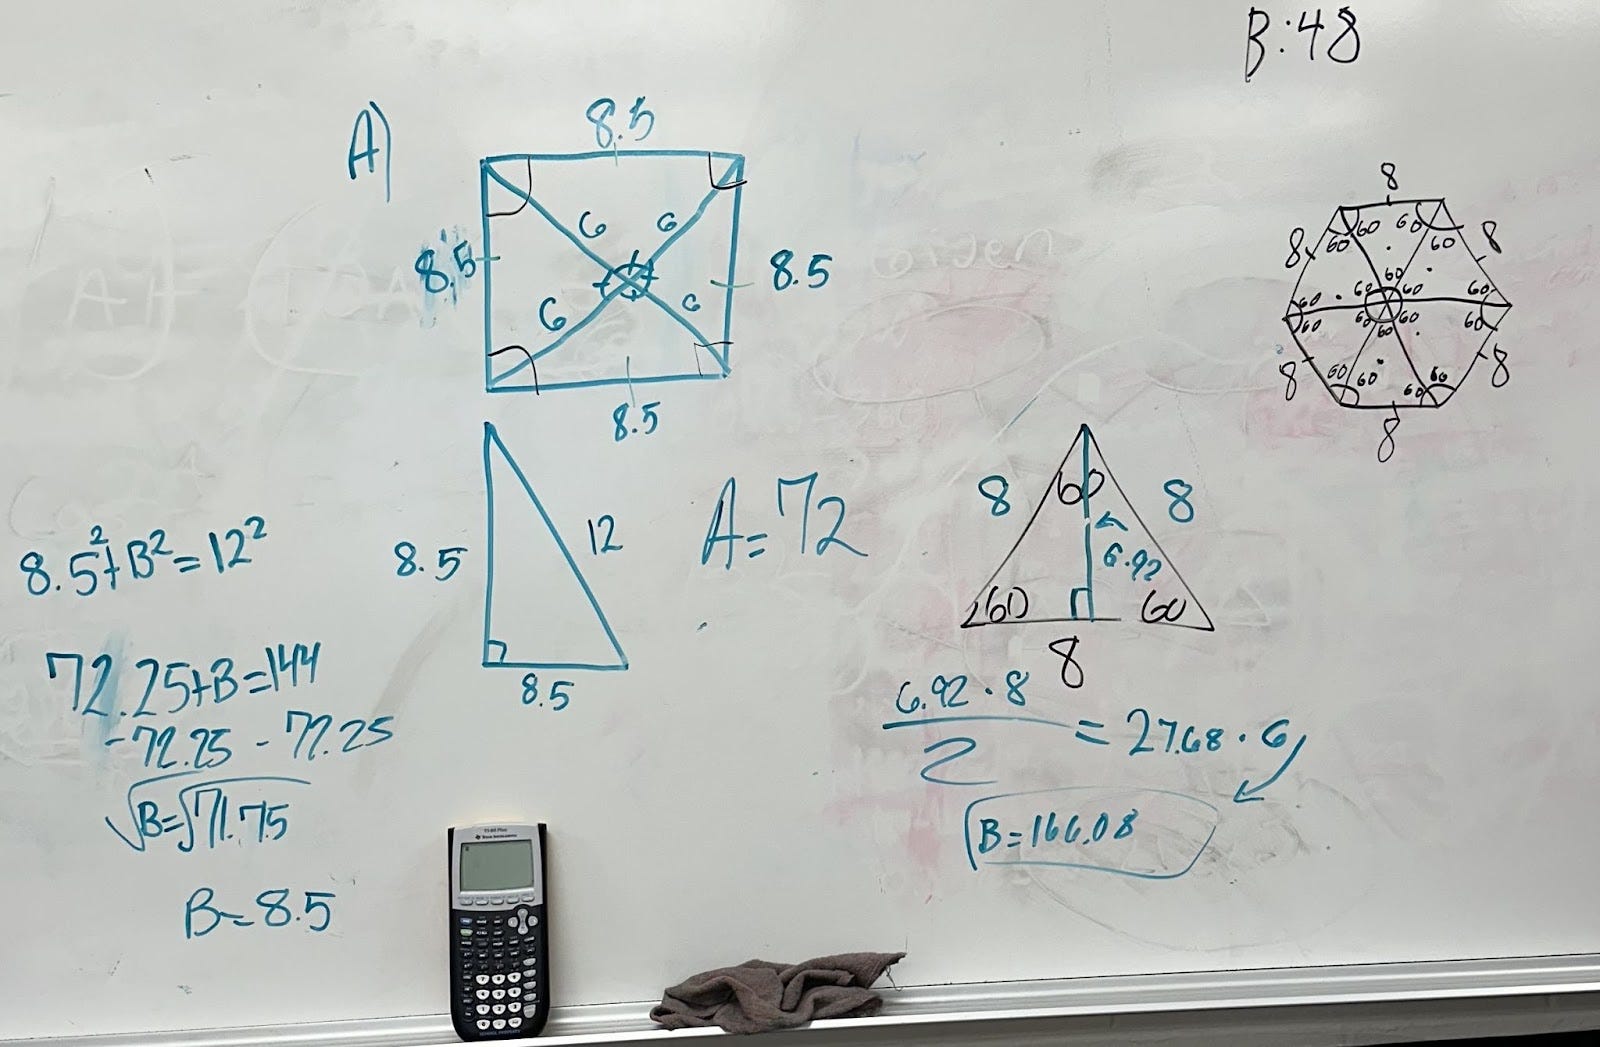 B:48
A)
8.5
8.5
6 6
8.5
6 6
8.5
8.5² + B² = 12²
72.25 + B = 144
-72.25 - 72.25
√B = √71.75
B = 8.5
8.5
12
8.5
A = 72
8
8 8
60 60
60 60
60
60 60 60 60
60 60 60 60
60
60 60 60 60
8 8
8
8 60 8
6.92
60 60
8
6.92 · 8
2
= 27.68 · 6
B = 166.08
TI-84 Plus
Texas Instruments